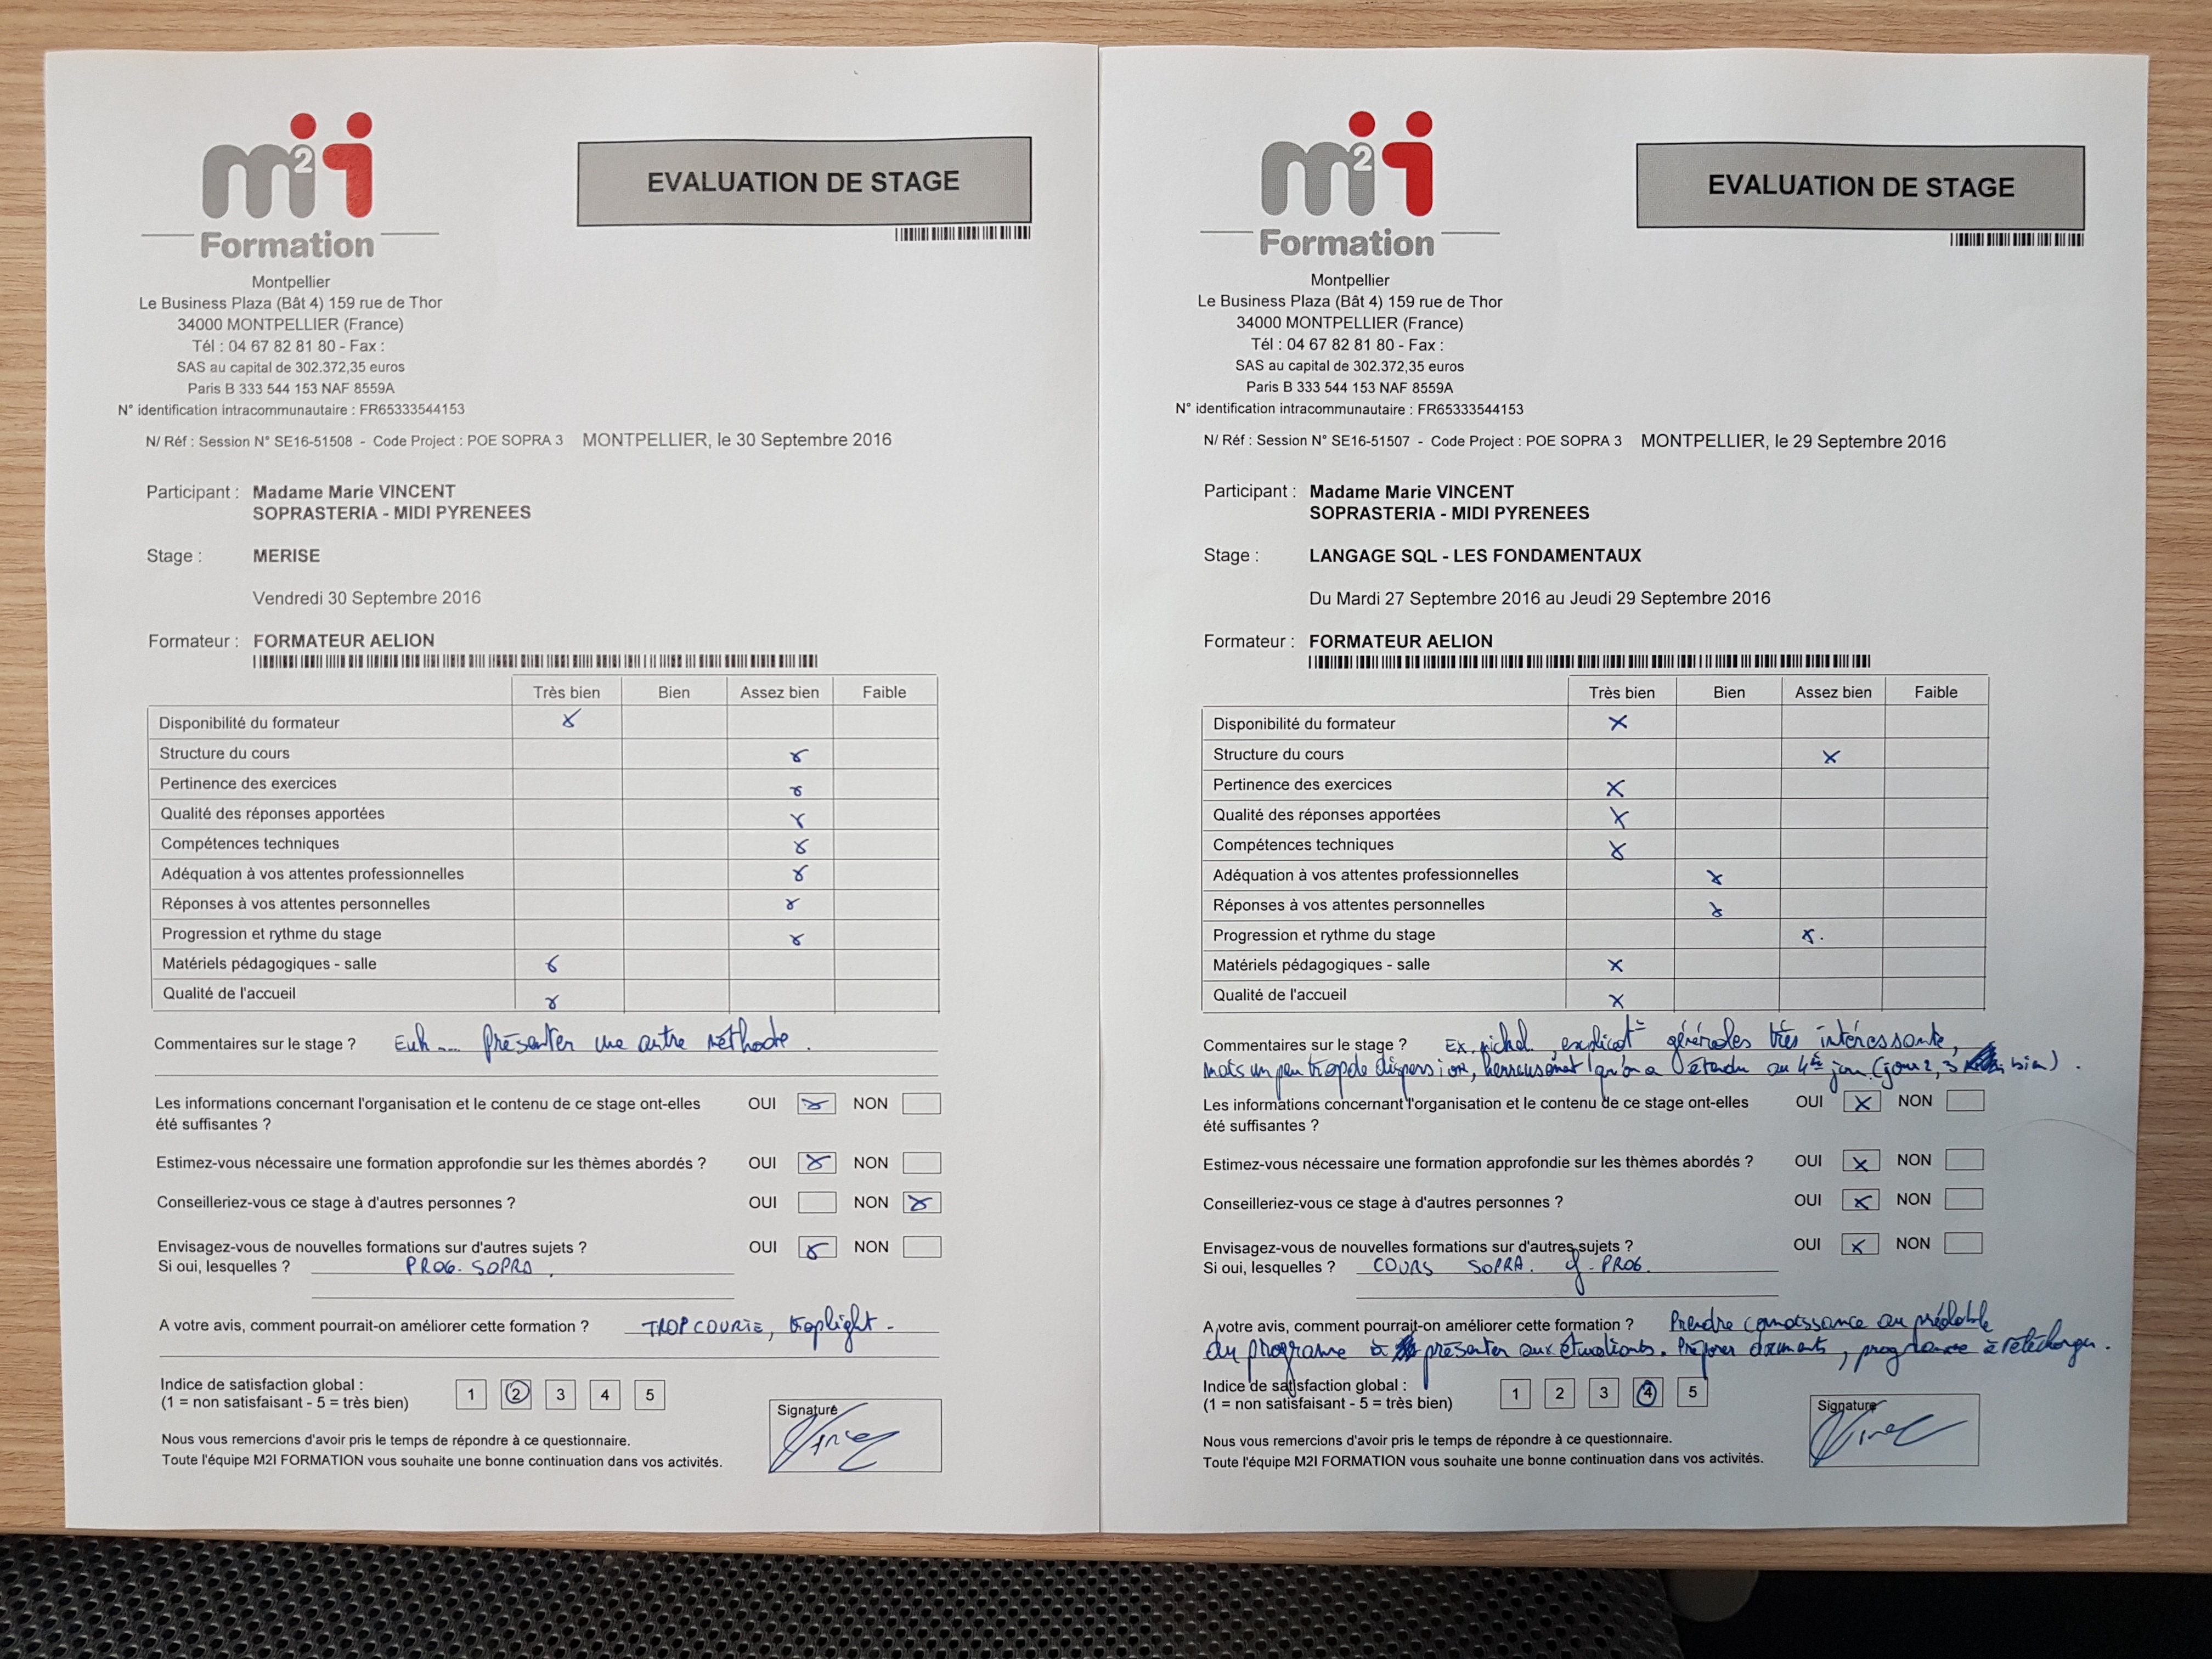 m2i
Formation
Montpellier
Le Business Plaza (Bât 4) 159 rue de Thor
34000 MONTPELLIER (France)
Tél : 04 67 82 81 80 - Fax :
SAS au capital de 302.372,35 euros
Paris B 333 544 153 NAF 8559A
N° identification intracommunautaire : FR65333544153
EVALUATION DE STAGE
N/ Réf : Session N° SE16-51508 - Code Project : POE SOPRA 3 MONTPELLIER, le 30 Septembre 2016
Participant : Madame Marie VINCENT
SOPRASTERIA - MIDI PYRENEES
Stage : MERISE
Vendredi 30 Septembre 2016
Formateur : FORMATEUR AELION
Très bien Bien Assez bien Faible
Disponibilité du formateur X
Structure du cours X
Pertinence des exercices X
Qualité des réponses apportées X
Compétences techniques X
Adéquation à vos attentes professionnelles X
Réponses à vos attentes personnelles X
Progression et rythme du stage X
Matériels pédagogiques - salle X
Qualité de l'accueil X
Commentaires sur le stage ? Euh.... Présenter une autre méthode.
Les informations concernant l'organisation et le contenu de ce stage ont-elles
été suffisantes ? OUI X NON
Estimez-vous nécessaire une formation approfondie sur les thèmes abordés ? OUI X NON
Conseilleriez-vous ce stage à d'autres personnes ? OUI NON X
Envisagez-vous de nouvelles formations sur d'autres sujets ? OUI X NON
Si oui, lesquelles ? PROG. SOPRA
A votre avis, comment pourrait-on améliorer cette formation ? TROP COURTE,
Indice de satisfaction global :
(1 = non satisfaisant - 5 = très bien) 1 2 3 4 5
Signature
Nous vous remercions d'avoir pris le temps de répondre à ce questionnaire.
Toute l'équipe M2I FORMATION vous souhaite une bonne continuation dans vos activités.
m2i
Formation
Montpellier
Le Business Plaza (Bât 4) 159 rue de Thor
34000 MONTPELLIER (France)
Tél : 04 67 82 81 80 - Fax :
SAS au capital de 302.372,35 euros
Paris B 333 544 153 NAF 8559A
N° identification intracommunautaire : FR65333544153
EVALUATION DE STAGE
N/ Réf : Session N° SE16-51507 - Code Project : POE SOPRA 3 MONTPELLIER, le 29 Septembre 2016
Participant : Madame Marie VINCENT
SOPRASTERIA - MIDI PYRENEES
Stage : LANGAGE SQL - LES FONDAMENTAUX
Du Mardi 27 Septembre 2016 au Jeudi 29 Septembre 2016
Formateur : FORMATEUR AELION
Très bien Bien Assez bien Faible
Disponibilité du formateur X
Structure du cours X
Pertinence des exercices X
Qualité des réponses apportées X
Compétences techniques X
Adéquation à vos attentes professionnelles X
Réponses à vos attentes personnelles X
Progression et rythme du stage X
Matériels pédagogiques - salle X
Qualité de l'accueil X
Commentaires sur le stage ? générales très intéressante,
mais un peu trop de digression, heureusement qu'on a étendu au 4è jour (jour 2, 3 bien).
Les informations concernant l'organisation et le contenu de ce stage ont-elles
été suffisantes ? OUI X NON
Estimez-vous nécessaire une formation approfondie sur les thèmes abordés ? OUI X NON
Conseilleriez-vous ce stage à d'autres personnes ? OUI X NON
Envisagez-vous de nouvelles formations sur d'autres sujets ? OUI X NON
Si oui, lesquelles ? COURS SOPRA. PROG.
A votre avis, comment pourrait-on améliorer cette formation ? Prendre connaissance au préalable
du programme à présenter aux
Indice de satisfaction global :
(1 = non satisfaisant - 5 = très bien) 1 2 3 4 5
Signature
Nous vous remercions d'avoir pris le temps de répondre à ce questionnaire.
Toute l'équipe M2I FORMATION vous souhaite une bonne continuation dans vos activités.